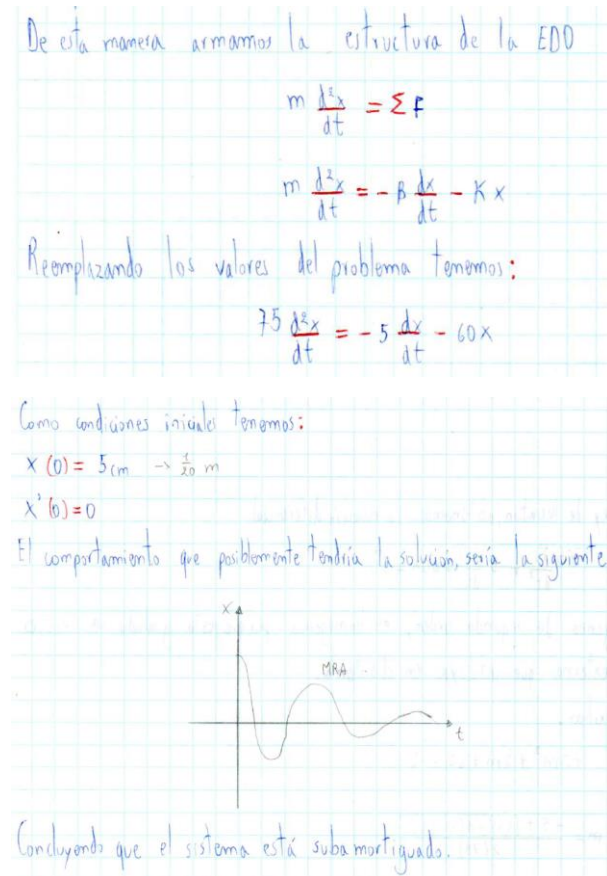 De esta manera armamos la estructura de la EDO
m d²x/dt = Σ F
m d²x/dt = - β dx/dt - K x
Reemplazando los valores del problema tenemos:
75 d²x/dt = - 5 dx/dt - 60x
Como condiciones iniciales tenemos:
x (0) = 5cm → 1/20 m
x' (0) = 0
El comportamiento que posiblemente tendría la solución, sería la siguiente
x
MRA
t
Concluyendo que el sistema está subamortiguado.